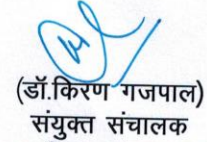 (डॉ.किरण गजपाल)
संयुक्त संचालक